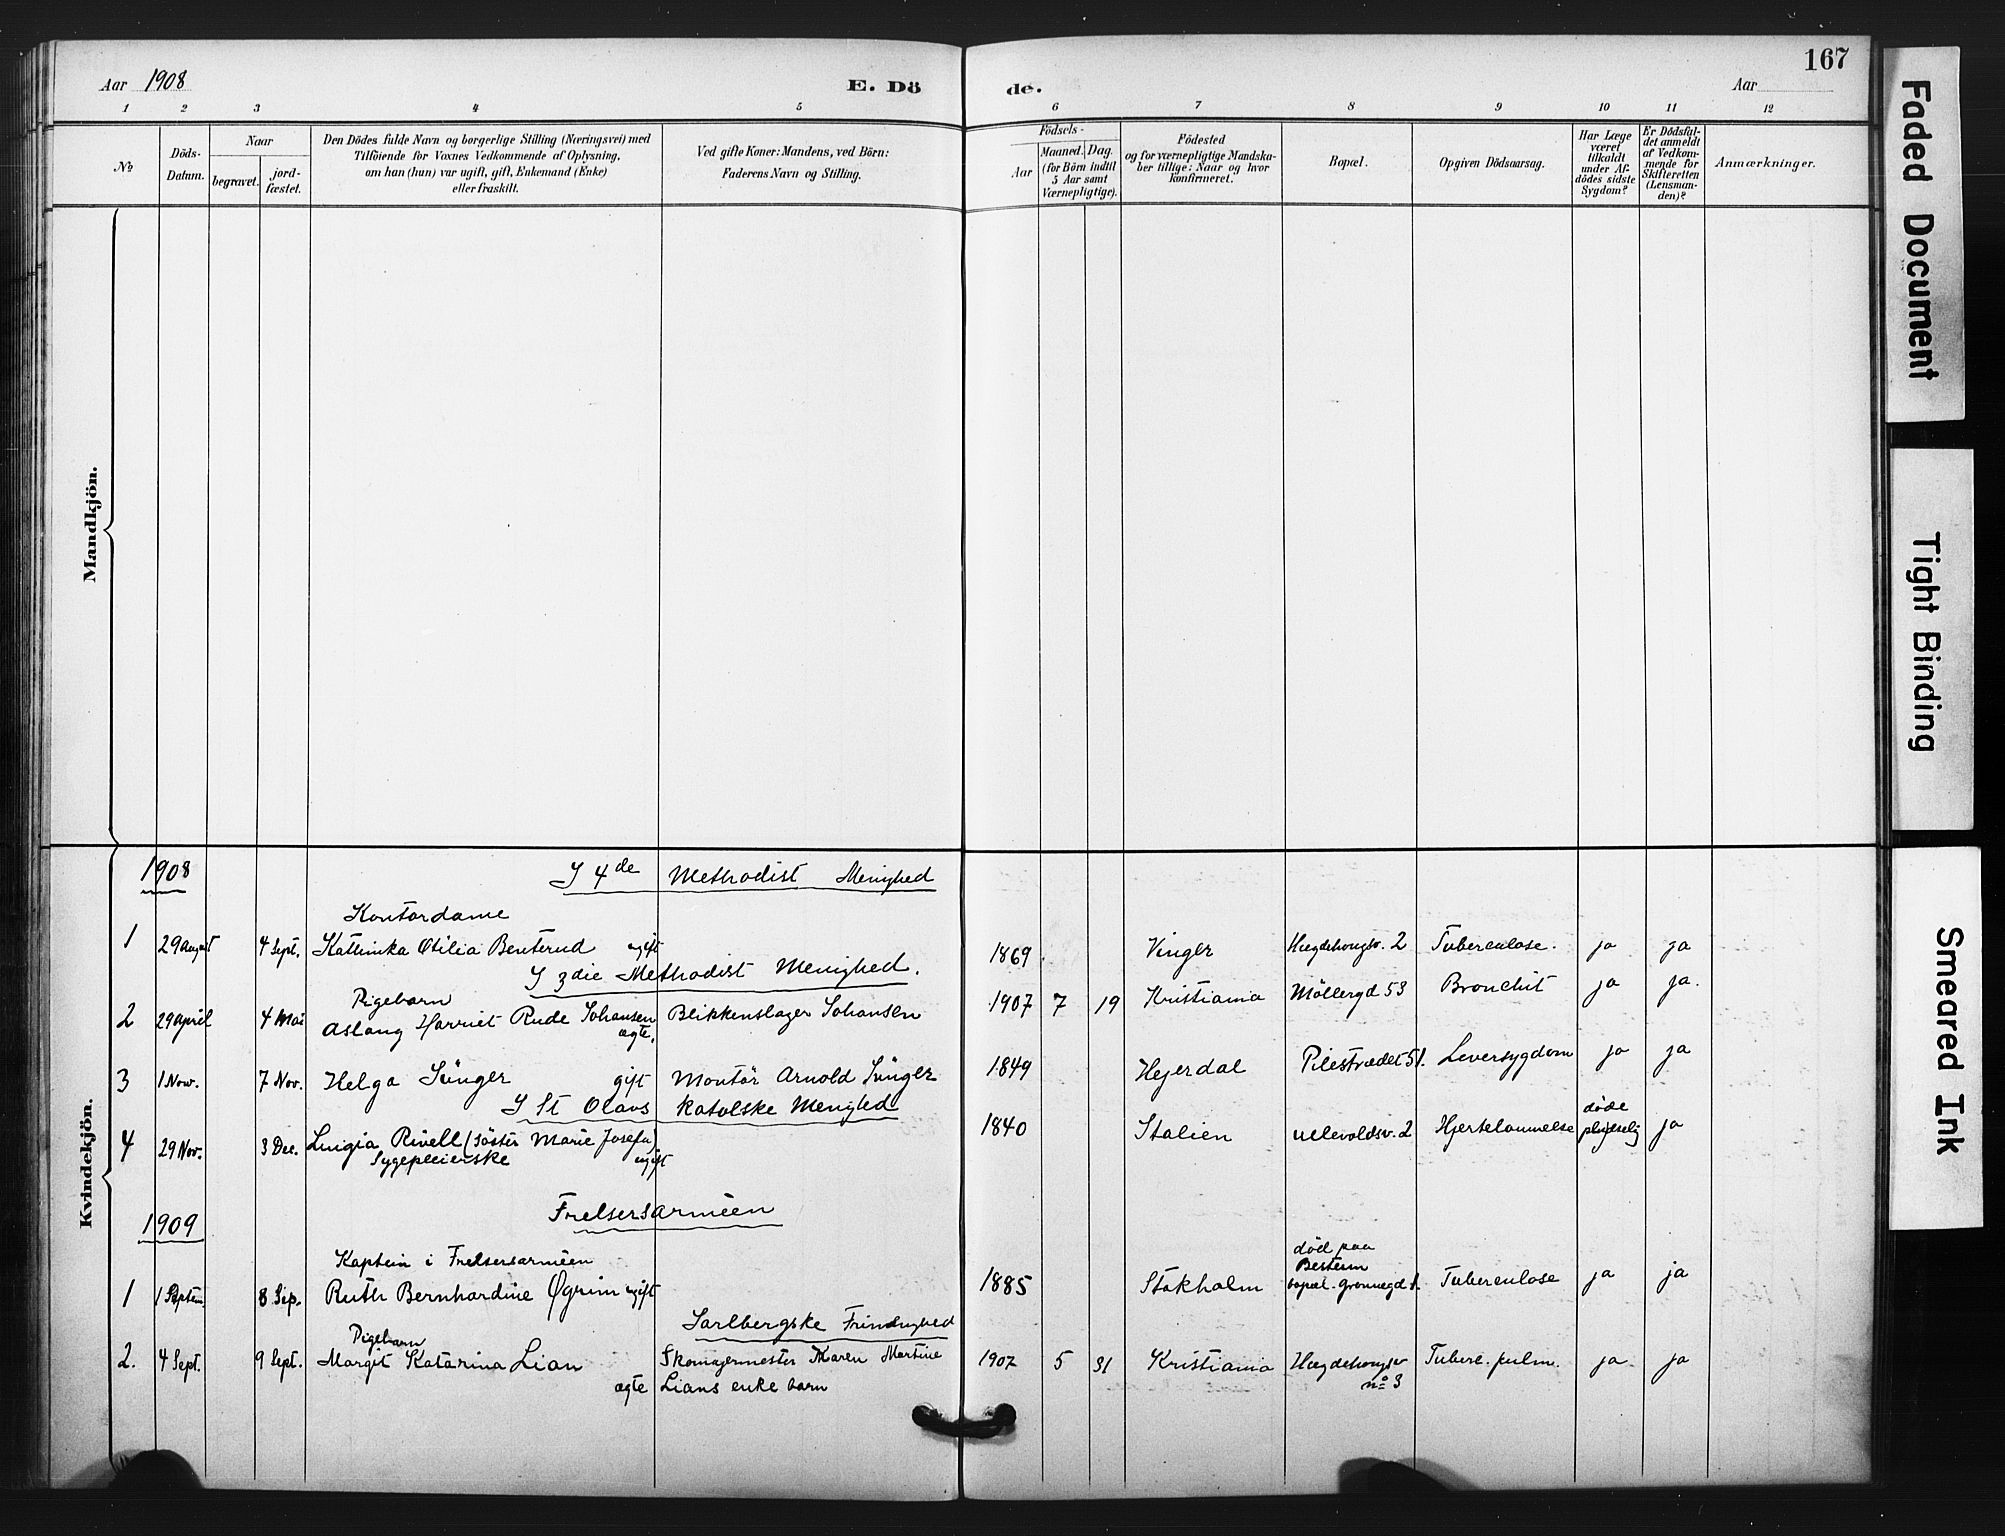 Aar 1908
E. Dö
de.
Aar
167
1 2 3 4 5 6 7 8 9 10 11 12
No
Döds-
Datum.
Naar
begravet.
jord-
fæstet.
Den Dödes fulde Navn og borgerlige Stilling (Næringsvei) med
Tilföiende for Voxnes Vedkommende af Oplysning,
om han (hun) var ugift, gift, Enkemand (Enke)
eller fraskilt.
Ved gifte Koner: Mandens, ved Börn:
Faderens Navn og Stilling.
Födsels-
Aar
Maaned. Dag.
(for Börn indtil
5 Aar samt
Værnepligtige).
Födested
og for værnepligtige Mandska-
ber tillige: Naar og hvor
konfirmeret.
Bopæl.
Opgiven Dödsaarsag.
Har Læge
været
tilkaldt
under Af-
dödes sidste
Sygdom?
Er Dödsfal-
det anmeldt
af Vedkom-
mende for
Skifteretten
(Lensman-
den)?
Anmærkninger.
Mandkjön.
Kvindekjön.
1908
I 4de Methodist Menighed
Kontordame
1 29 August 4 Sept. Kathinka Otilia Benterud ugift 1869 Vinger Hægdehougsv. 2 Tuberculose. ja ja
I 3die Methodist Menighed.
Pigebarn
2 29 April 4 Mai Aslaug Harriet Rude Johansen Blikkenslager Johansen 1907 7 19 Kristiania Möllergd 53 Bronchit ja ja.
ægte.
3 1 Nov. 7 Nov. Helga Sünger gift Montör Arnold Sünger 1849 Hejerdal Pilestrædet 51. Leversygdom ja ja
I St Olavs katolske Menighed
4 29 Nov. 3 Dec. Luigia Rivell (Söster Marie Josefa) 1840 Italien Ullevoldsv. 2 Hjertelammelse døde pludselig ja
Sygepleierske ugift
1909
Frelsersarméen
Kaptein i Frelsersarméen
1 1 Septem 8 Sep. Ruth Bernhardine Øgrim ugift 1885 Stokholm død paa
Bestum
bopæl. Grønnegd 1. Tuberculose ja ja
Sarlbergske Frimenighed
Pigebarn
2. 4 Sept. 9 Sept. Margit Katarina Lian Skomagermester Maren Martine 1907 5 31 Kristiania Hægdehougsv Tuberc. pulm. ja ja
ægte Lians enke barn no 3
Faded Document
Tight Binding
Smeared Ink